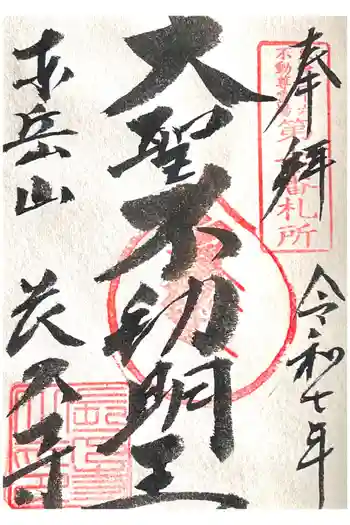 奉拝
令和七年
大聖不動明王
東岳山
長久寺
不動尊
番札所